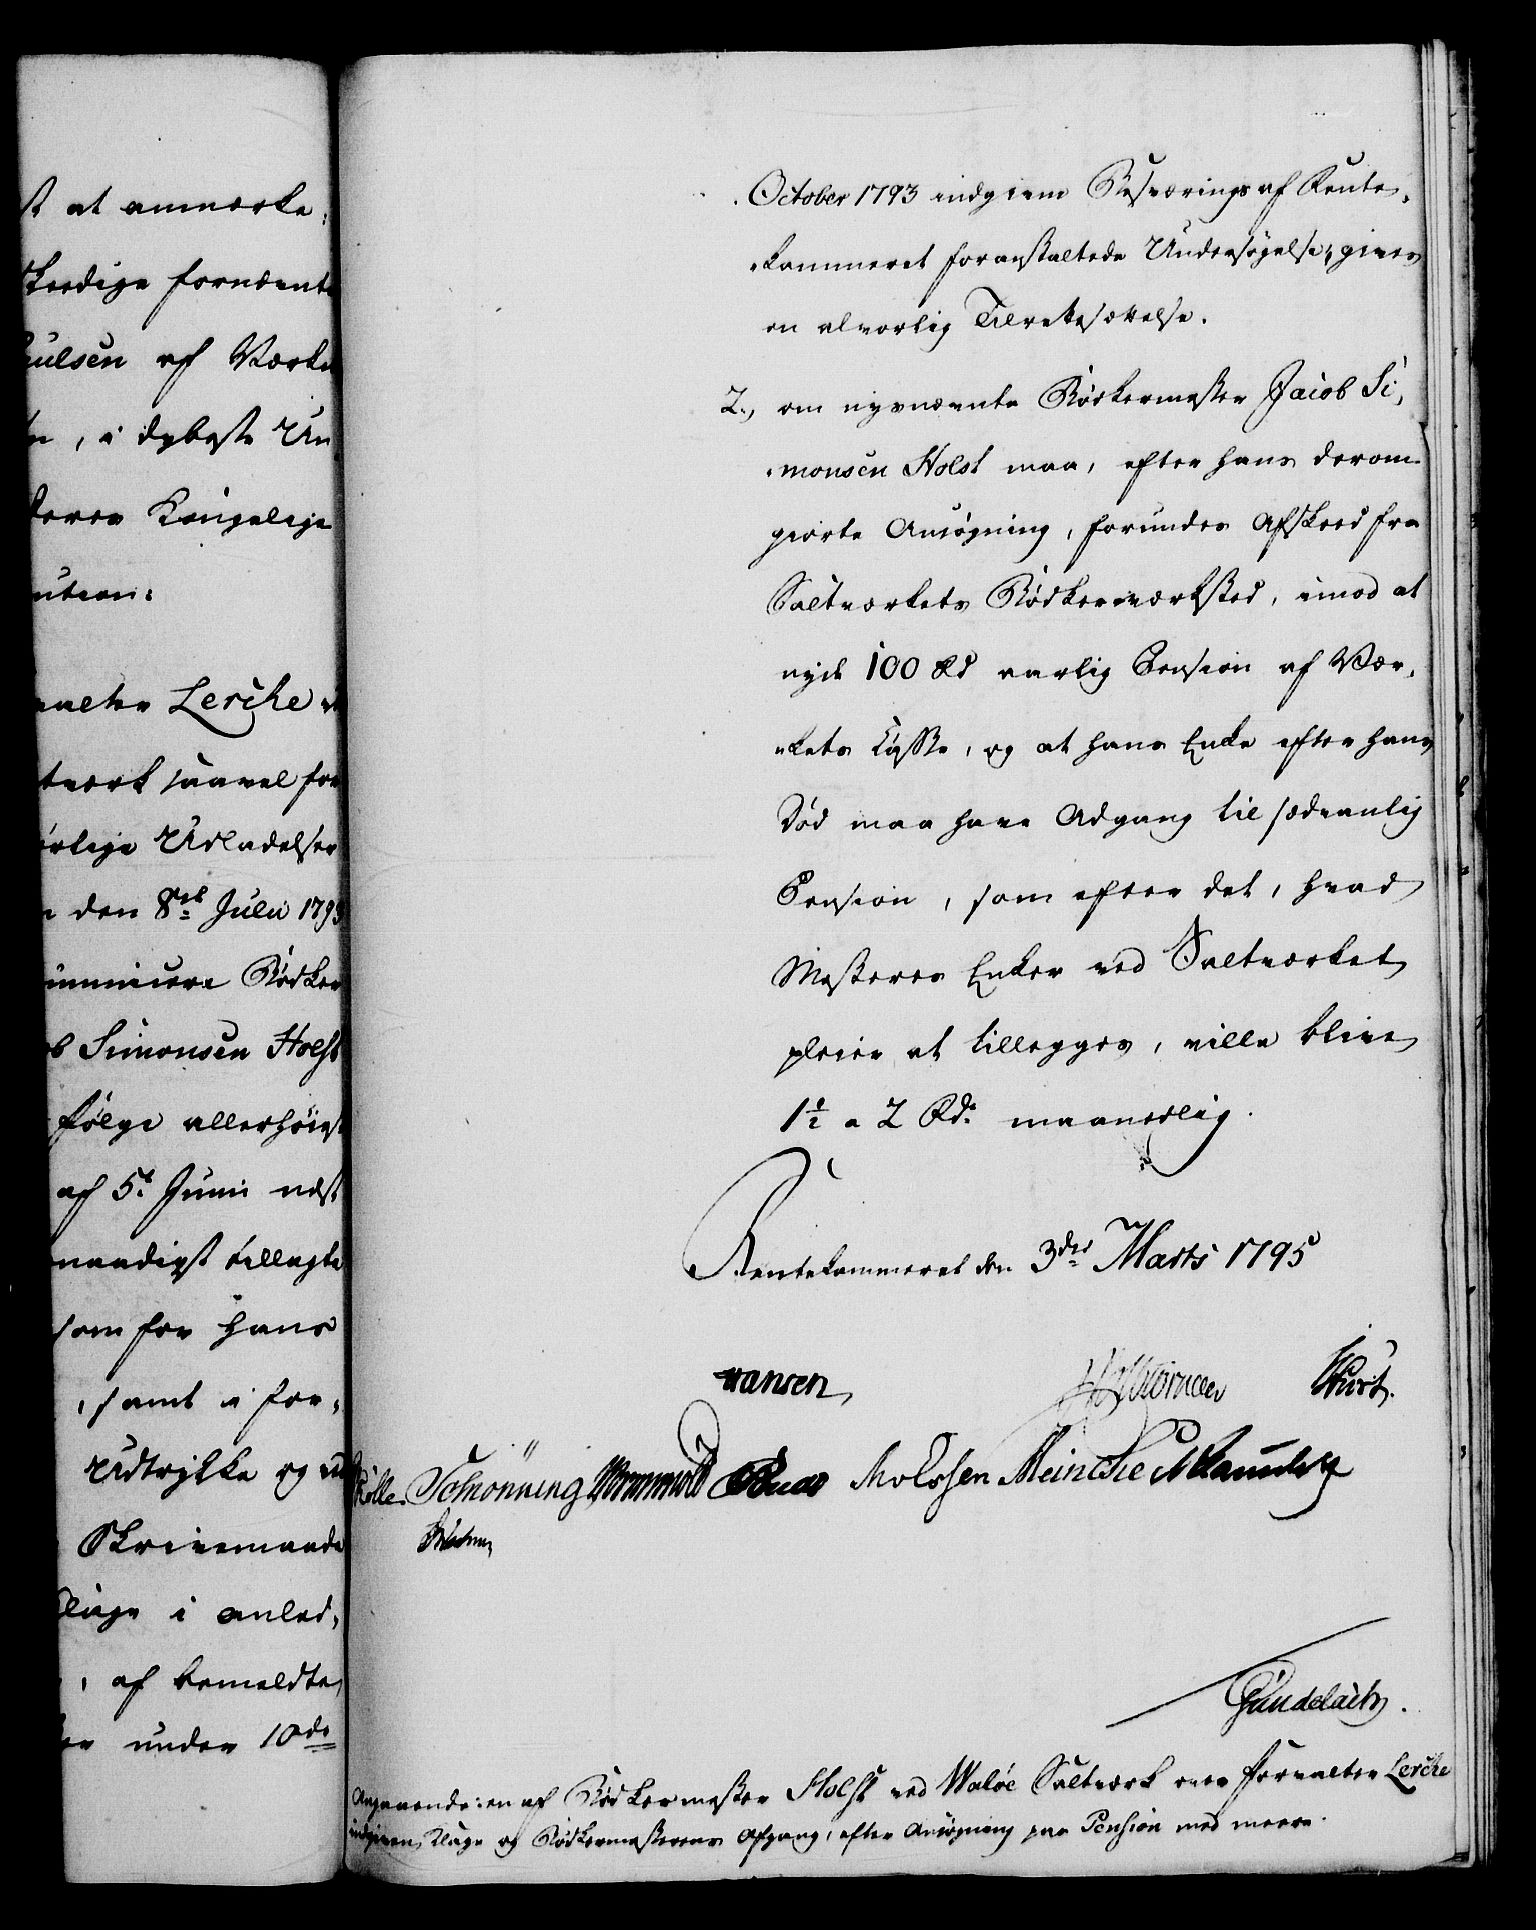 st at anmærke:
skeedige fornævnte
ulsen af Værke
, i dybeste Un
deres Kongelige
ution:
valter Lerche
tværk saavel for
rlige Udladelser
den 8de Julii 1793
Bødker
Simonsen Holst
følge allerhöiest
af 5t Junii næst
naadigst tillagte
som for hans
, samt i for-
Udtrykke og
Skrivemaade
Klage i anled-
, af bemeldte
under 10de
October 1793 indgivne Besværings af Rente-
kammeret foranstaltede Undersögelse, gives
en alvorlig Tilrettesættelse.
2., om nysnævnte Bödkermester Jacob Si-
monsen Holst maa, efter hans derom
giorte Ansögning, forundes Afskeed fra
Saltværkets Bödkerværksted, imod at
nyde 100 Rd aarlig Pension af Vær-
kets Casse, og at hans Enke efter hans
Död maa have Adgang til sædvanlig
Pension, som efter det, hvad
Mesteres Enker ved Saltværket
pleier at tillegges, ville blive
1½ a 2 Rd. maanedlig.
Rentekammeret den 3die Marts 1795
Hansen
Schönning Wormwold Molssen Meincke
Gundelach.
Angaaende: en af Bödkermester Holst ved Walöe Saltværk over Forvalter Lerche
indgiven Klage og Bödkermesterens Afgang, efter Ansögning paa Pension med meere.